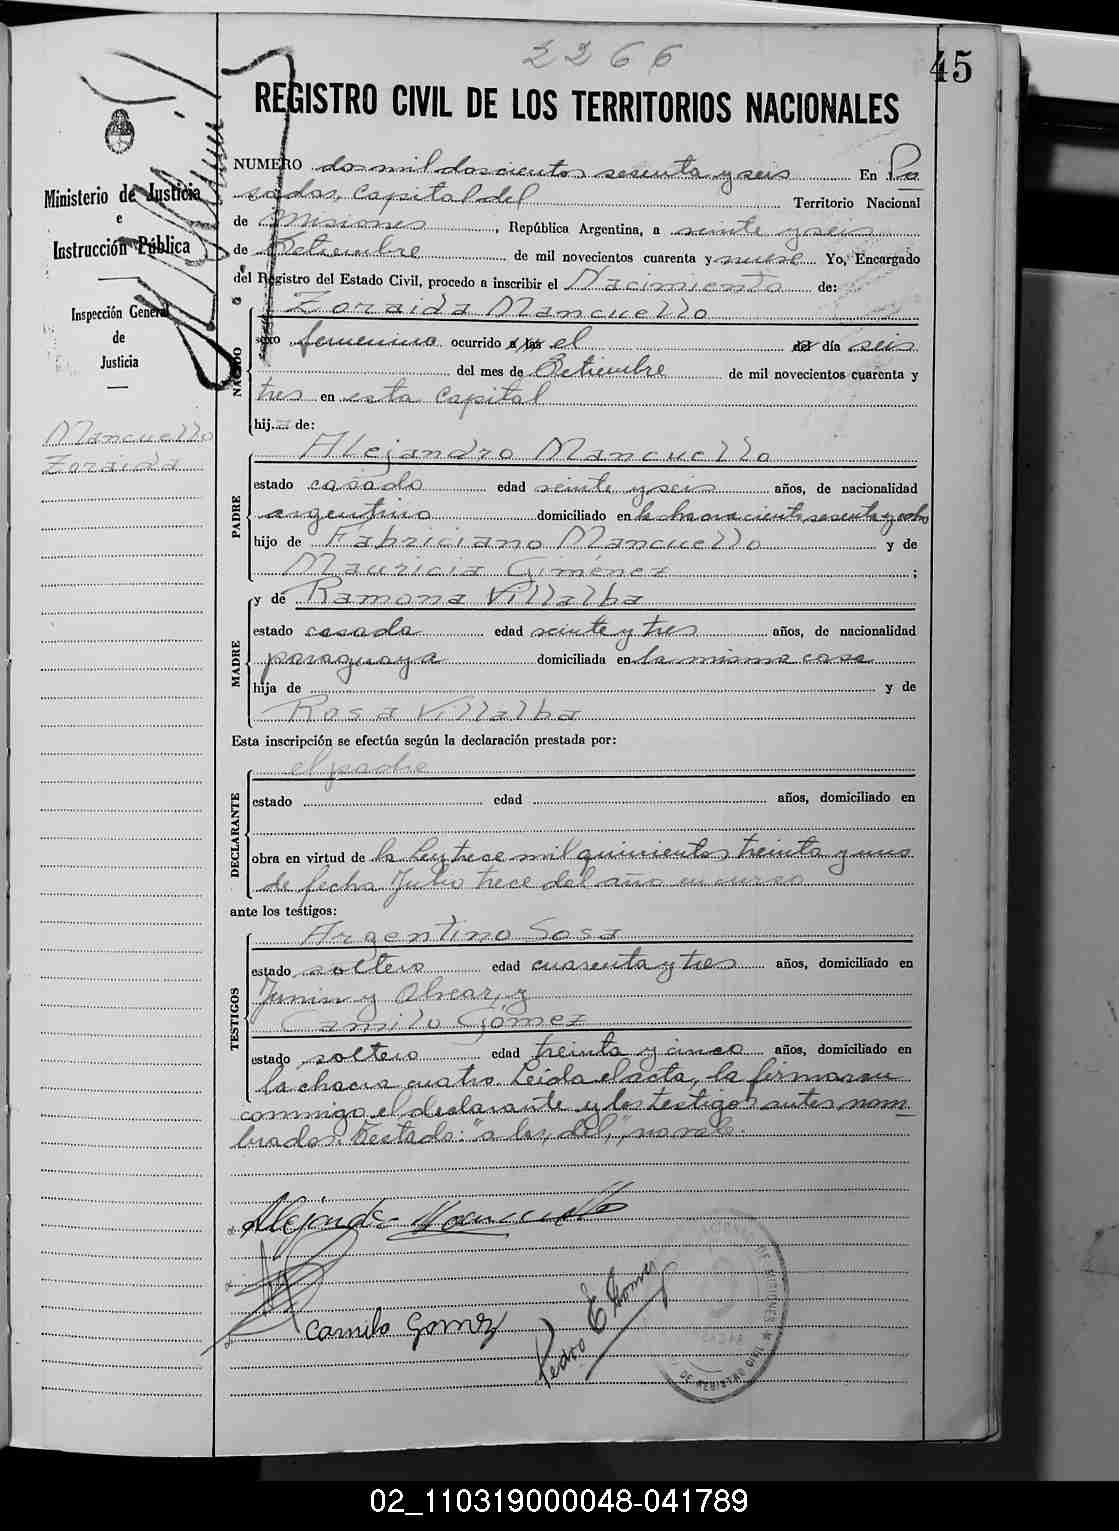 2266
45
REGISTRO CIVIL DE LOS TERRITORIOS NACIONALES
Ministerio de Justicia
e
Instrucción Pública
Inspección General
de
Justicia
Mancuello
Zoraida
NUMERO dos mil doscientos sesenta y seis En Po
sadas, capital del Territorio Nacional
de Misiones, República Argentina, a veinte y seis
de Setiembre de mil novecientos cuarenta y nueve Yo, Encargado
del Registro del Estado Civil, procedo a inscribir el Nacimiento de:
NACIDO
Zoraida Mancuello
sexo femenino ocurrido a las el del día seis
del mes de Setiembre de mil novecientos cuarenta y
tres en esta capital
hija de:
PADRE
Alejandro Mancuello
estado casado edad veinte y seis años, de nacionalidad
argentino domiciliado en la chacra ciento sesenta y ocho
hijo de Fabriciano Mancuello y de
Mauricia Giménez ;
MADRE
y de Ramona Villalba
estado casada edad veinte y tres años, de nacionalidad
paraguaya domiciliada en la misma casa
hija de y de
Rosa Villalba
Esta inscripción se efectúa según la declaración prestada por:
DECLARANTE
el padre
estado edad años, domiciliado en
obra en virtud de la Ley trece mil quinientos treinta y uno
de fecha Julio trece del año en curso
ante los testigos:
TESTIGOS
Argentino Sosa
estado soltero edad cuarenta y tres años, domiciliado en
Junin y Alvear, y
Camilo Gómez
estado soltero edad treinta y cinco años, domiciliado en
la chacra cuatro. Leida el acta, la firmaron
conmigo el declarante y los testigos antes nom
brados. Testado: "a las, del," no vale.
Alejandro Mancuello
Camilo Gomez
Pedro E Gomez
DE REGISTRO CIVIL
02_110319000048-041789